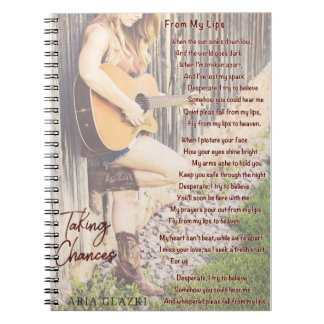 From My Lips
When the sun sinks down low,
And the world goes dark
When I'm broken apart,
And I've lost my spark
Desperate I try to believe
Somehow you could hear me
Quiet pleas fall from my lips,
Fly from my lips to heaven.
When I picture your face
How your eyes shine bright
My arms ache to hold you
Keep you safe through the night
Desperate, I try to believe
You'll soon be here with me
My prayers pour out from my lips
Fly from my lips to heaven.
My heart can't beat, while we're apart
I miss your love, as I seek a fresh start
For us
Desperate, I try to believe
Somehow you could hear me
And whispered pleas fall from my lips,
Taking
Chances
ARIA GLAZKI